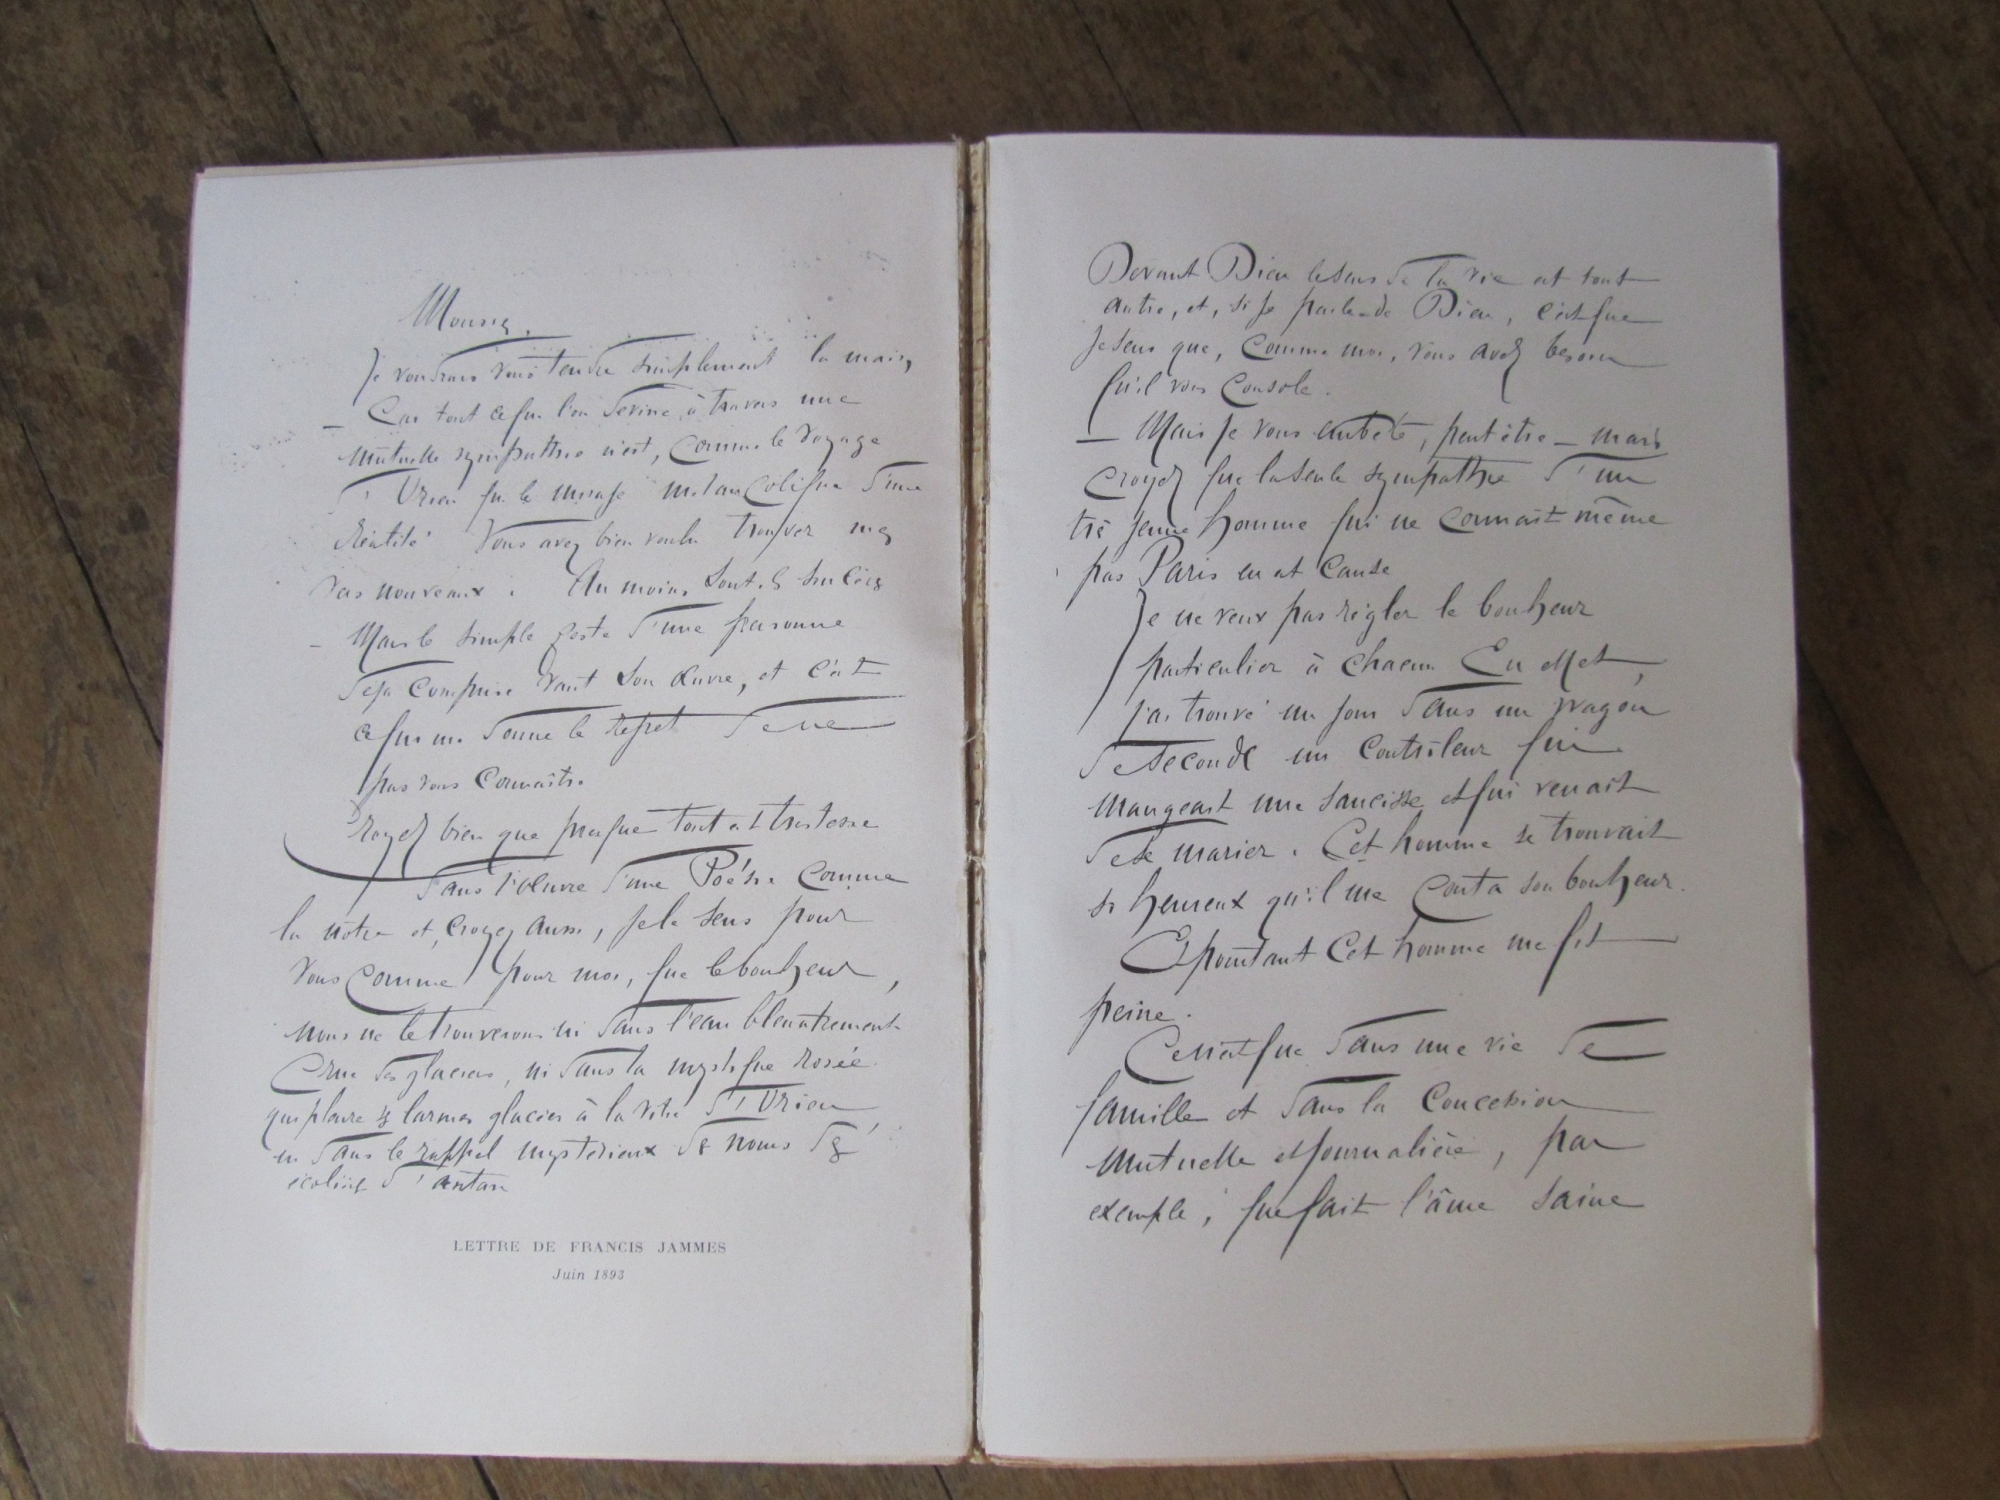 Monsieur,
Je voudrais vous tendre simplement la main,
Car tout ce que l'on devine à travers une
mutuelle sympathie n'est, comme le Voyage
d'Urien que le mirage mélancolique d'une
Réalité. Vous avez bien voulu trouver mes
vers nouveaux. Au moins sont-ils sincères
– Mais le simple geste d'une personne
déjà comprise vaut son œuvre, et c'est
ce qui me donne le regret de ne
pas vous connaître.
Croyez bien que presque tout est tristesse
dans l'œuvre d'une Poésie comme
la nôtre et, croyez aussi, je le sens pour
vous comme pour moi, que le bonheur,
nous ne le trouverons ni dans l'eau bleuâtrement
crue des glaciers, ni dans la mystique rosée
qui pleure ses larmes glacées à la vitre d'Urien
ni dans le rappel mystérieux des noms des
écoliers d'antan
LETTRE DE FRANCIS JAMMES
Juin 1893
Devant Dieu le sens de la vie est tout
autre, et, si je parle de Dieu, c'est que
je sens que, comme moi, vous avez besoin
qu'il vous console.
– Mais je vous embête, peut être – mais
croyez que la seule sympathie d'un
très jeune homme qui ne connait même
pas Paris en est cause
Je ne veux pas règler le bonheur
particulier à chacun. En effet,
j'ai trouvé un jour dans un wagon
de seconde un contrôleur qui
mangeait une saucisse et qui venait
de se marier. Cet homme se trouvait
si heureux qu'il me conta son bonheur.
Et pourtant cet homme me fit
peine.
Ce n'est que dans une vie de
famille et dans la concession
mutuelle et journalière, par
exemple, que fait l'âme saine